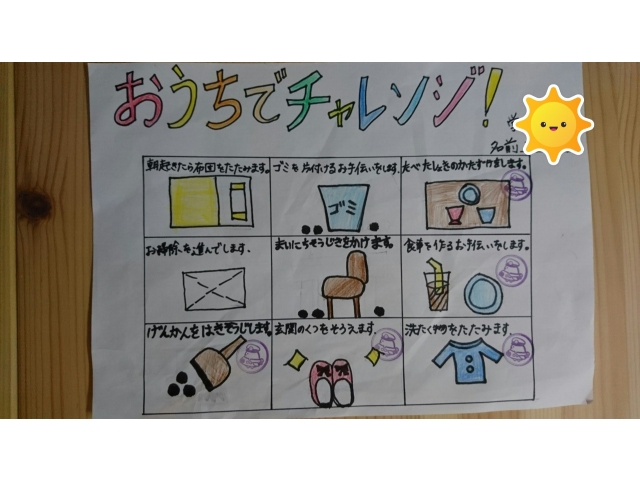 おうちでチャレンジ!
名前
朝起きたら布団をたたみます。
ゴミを片付けるお手伝いをします。
たべたしょっきのかたずけをします。
ゴミ
お掃除を進んでします.
まいにちそうじきをかけます。
食事を作るお手伝いをします。
げんかんをはきそうじします。
玄関のくつをそろえます.
洗たく物をたたみます